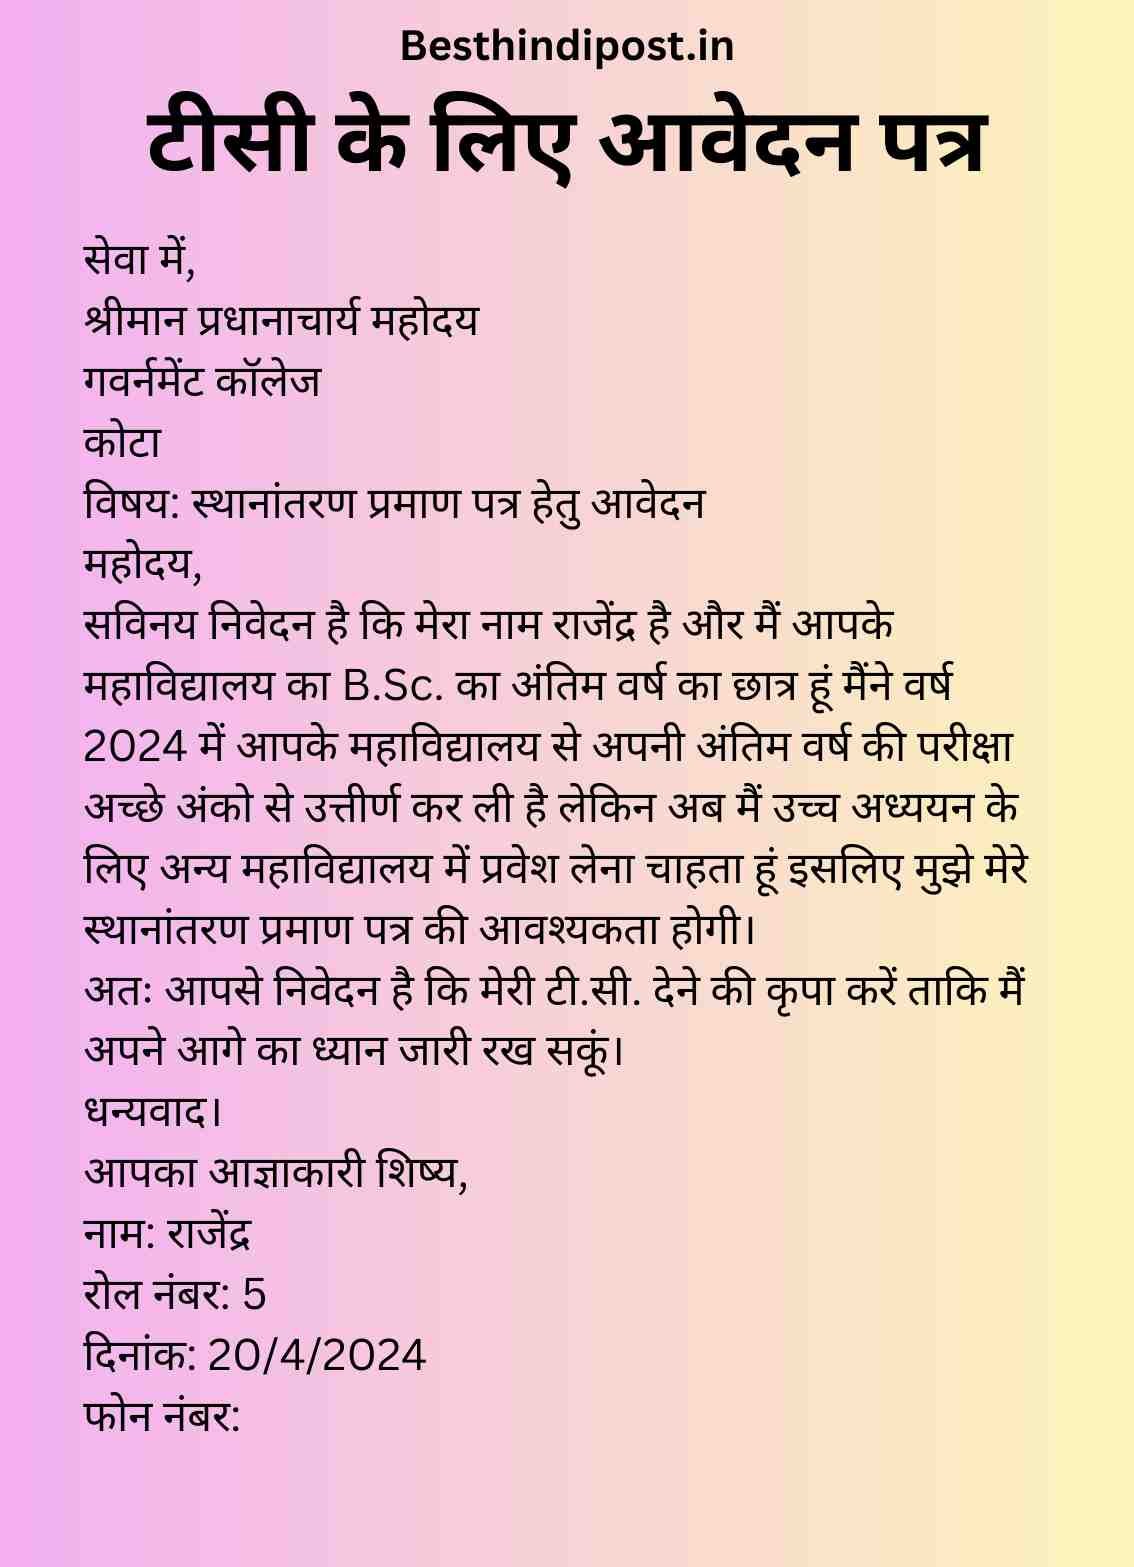 Besthindipost.in
टीसी के लिए आवेदन पत्र
सेवा में,
श्रीमान प्रधानाचार्य महोदय
गवर्नमेंट कॉलेज
कोटा
विषय: स्थानांतरण प्रमाण पत्र हेतु आवेदन
महोदय,
सविनय निवेदन है कि मेरा नाम राजेंद्र है और मैं आपके
महाविद्यालय का B.Sc. का अंतिम वर्ष का छात्र हूं मैंने वर्ष
2024 में आपके महाविद्यालय से अपनी अंतिम वर्ष की परीक्षा
अच्छे अंको से उत्तीर्ण कर ली है लेकिन अब मैं उच्च अध्ययन के
लिए अन्य महाविद्यालय में प्रवेश लेना चाहता हूं इसलिए मुझे मेरे
स्थानांतरण प्रमाण पत्र की आवश्यकता होगी।
अतः आपसे निवेदन है कि मेरी टी.सी. देने की कृपा करें ताकि मैं
अपने आगे का ध्यान जारी रख सकूं।
धन्यवाद।
आपका आज्ञाकारी शिष्य,
नाम: राजेंद्र
रोल नंबर: 5
दिनांक: 20/4/2024
फोन नंबर: